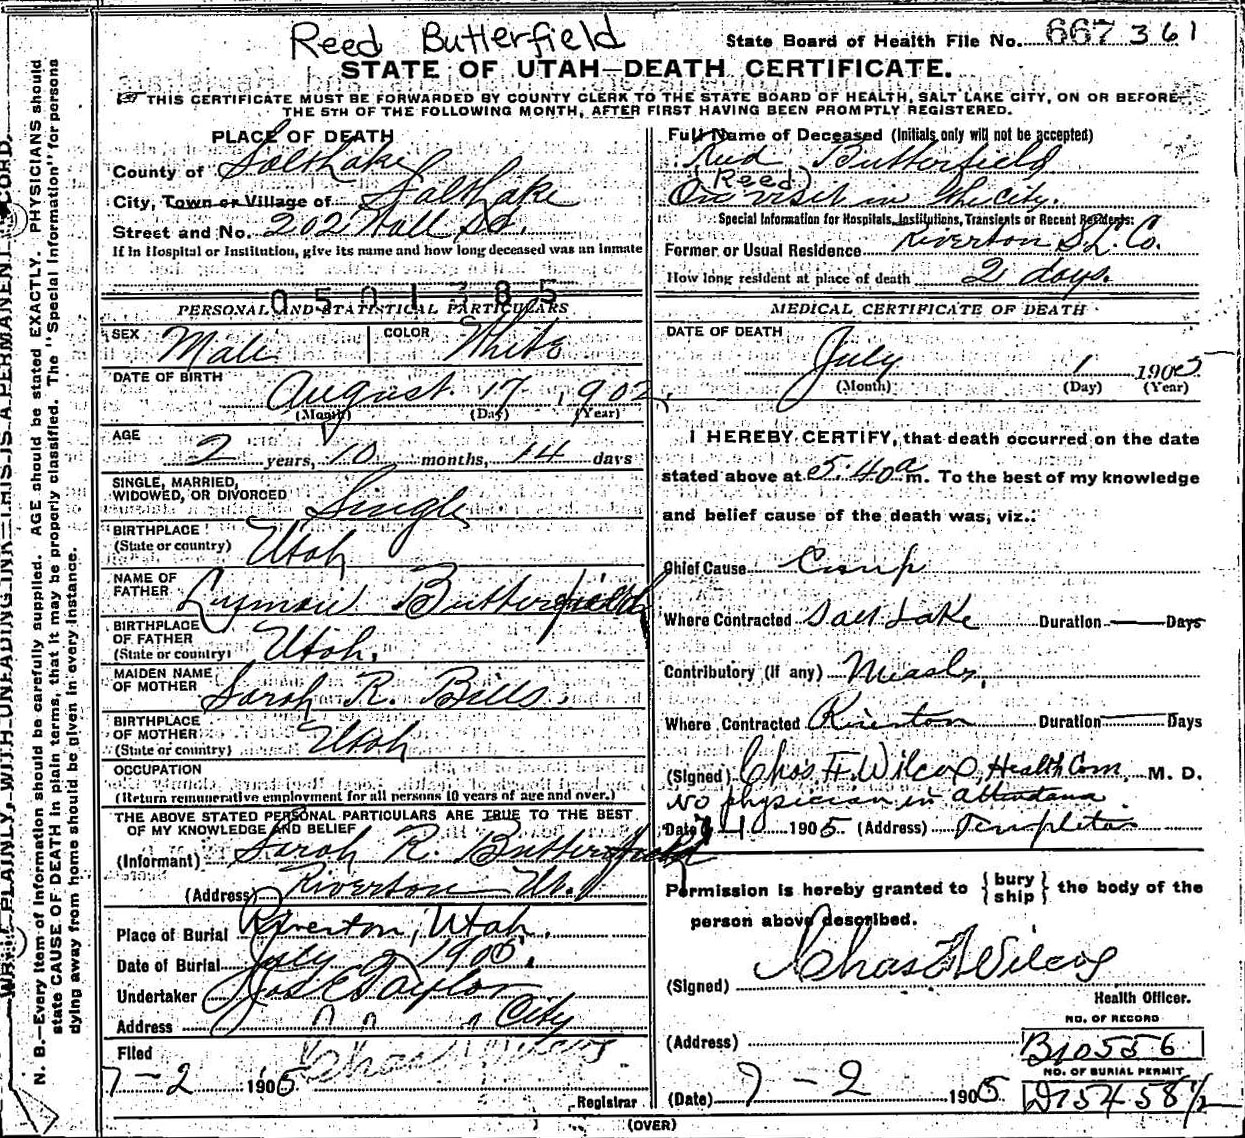 Reed Butterfield
State Board of Health File No. 667 361
STATE OF UTAH—DEATH CERTIFICATE.
THIS CERTIFICATE MUST BE FORWARDED BY COUNTY CLERK TO THE STATE BOARD OF HEALTH, SALT LAKE CITY, ON OR BEFORE
THE 5TH OF THE FOLLOWING MONTH, AFTER FIRST HAVING BEEN PROMPTLY REGISTERED.
PLACE OF DEATH
County of Salt Lake
City, Town or Village of Salt Lake
Street and No. 202 Wall St.
If in Hospital or Institution, give its name and how long deceased was an inmate
0501385
PERSONAL AND STATISTICAL PARTICULARS
SEX Male COLOR White
DATE OF BIRTH August 17, 1902
(Month) (Day) (Year)
AGE 2 years, 10 months, 14 days
SINGLE, MARRIED,
WIDOWED, OR DIVORCED Single
BIRTHPLACE
(State or country) Utah
NAME OF
FATHER Lyman Butterfield
BIRTHPLACE
OF FATHER
(State or country) Utah.
MAIDEN NAME
OF MOTHER Sarah R. Bills.
BIRTHPLACE
OF MOTHER
(State or country) Utah
OCCUPATION
(Return remunerative employment for all persons 10 years of age and over.)
THE ABOVE STATED PERSONAL PARTICULARS ARE TRUE TO THE BEST
OF MY KNOWLEDGE AND BELIEF
(Informant) Sarah R. Butterfield
(Address) Riverton Ut.
Place of Burial Riverton, Utah.
Date of Burial July 2 1905.
Undertaker Jos E Taylor
Address City
Filed
7-2 1905 Chas Wilcox
Registrar
Full Name of Deceased (Initials only will not be accepted)
Reid Butterfield
(Reed)
On visit in the city.
Special Information for Hospitals, Institutions, Transients or Recent Residents:
Former or Usual Residence Riverton S. L. Co.
How long resident at place of death 2 days.
MEDICAL CERTIFICATE OF DEATH
DATE OF DEATH
July 1 1905
(Month) (Day) (Year)
I HEREBY CERTIFY, that death occurred on the date
stated above at 5:40 a m. To the best of my knowledge
and belief cause of the death was, viz.:
Chief Cause Croup
Where Contracted Salt Lake Duration Days
Contributory (if any) Measles,
Where Contracted Riverton Duration Days
(Signed) Chas. F. Wilcox Health Com, M. D.
No physician in attendance
Date 7-10 1905. (Address) Templeton
Permission is hereby granted to {bury ship} the body of the
person above described.
(Signed) Chas F Wilcox
Health Officer.
NO. OF RECORD
(Address) B10556
NO. OF BURIAL PERMIT
(Date) 7-2 1905 D15458½
(OVER)
N. B.—Every item of information should be carefully supplied. AGE should be stated EXACTLY. PHYSICIANS should
state CAUSE OF DEATH in plain terms, that it may be properly classified. The "Special Information" for persons
dying away from home should be given in every instance.
WRITE PLAINLY, WITH UNFADING INK—THIS IS A PERMANENT RECORD.